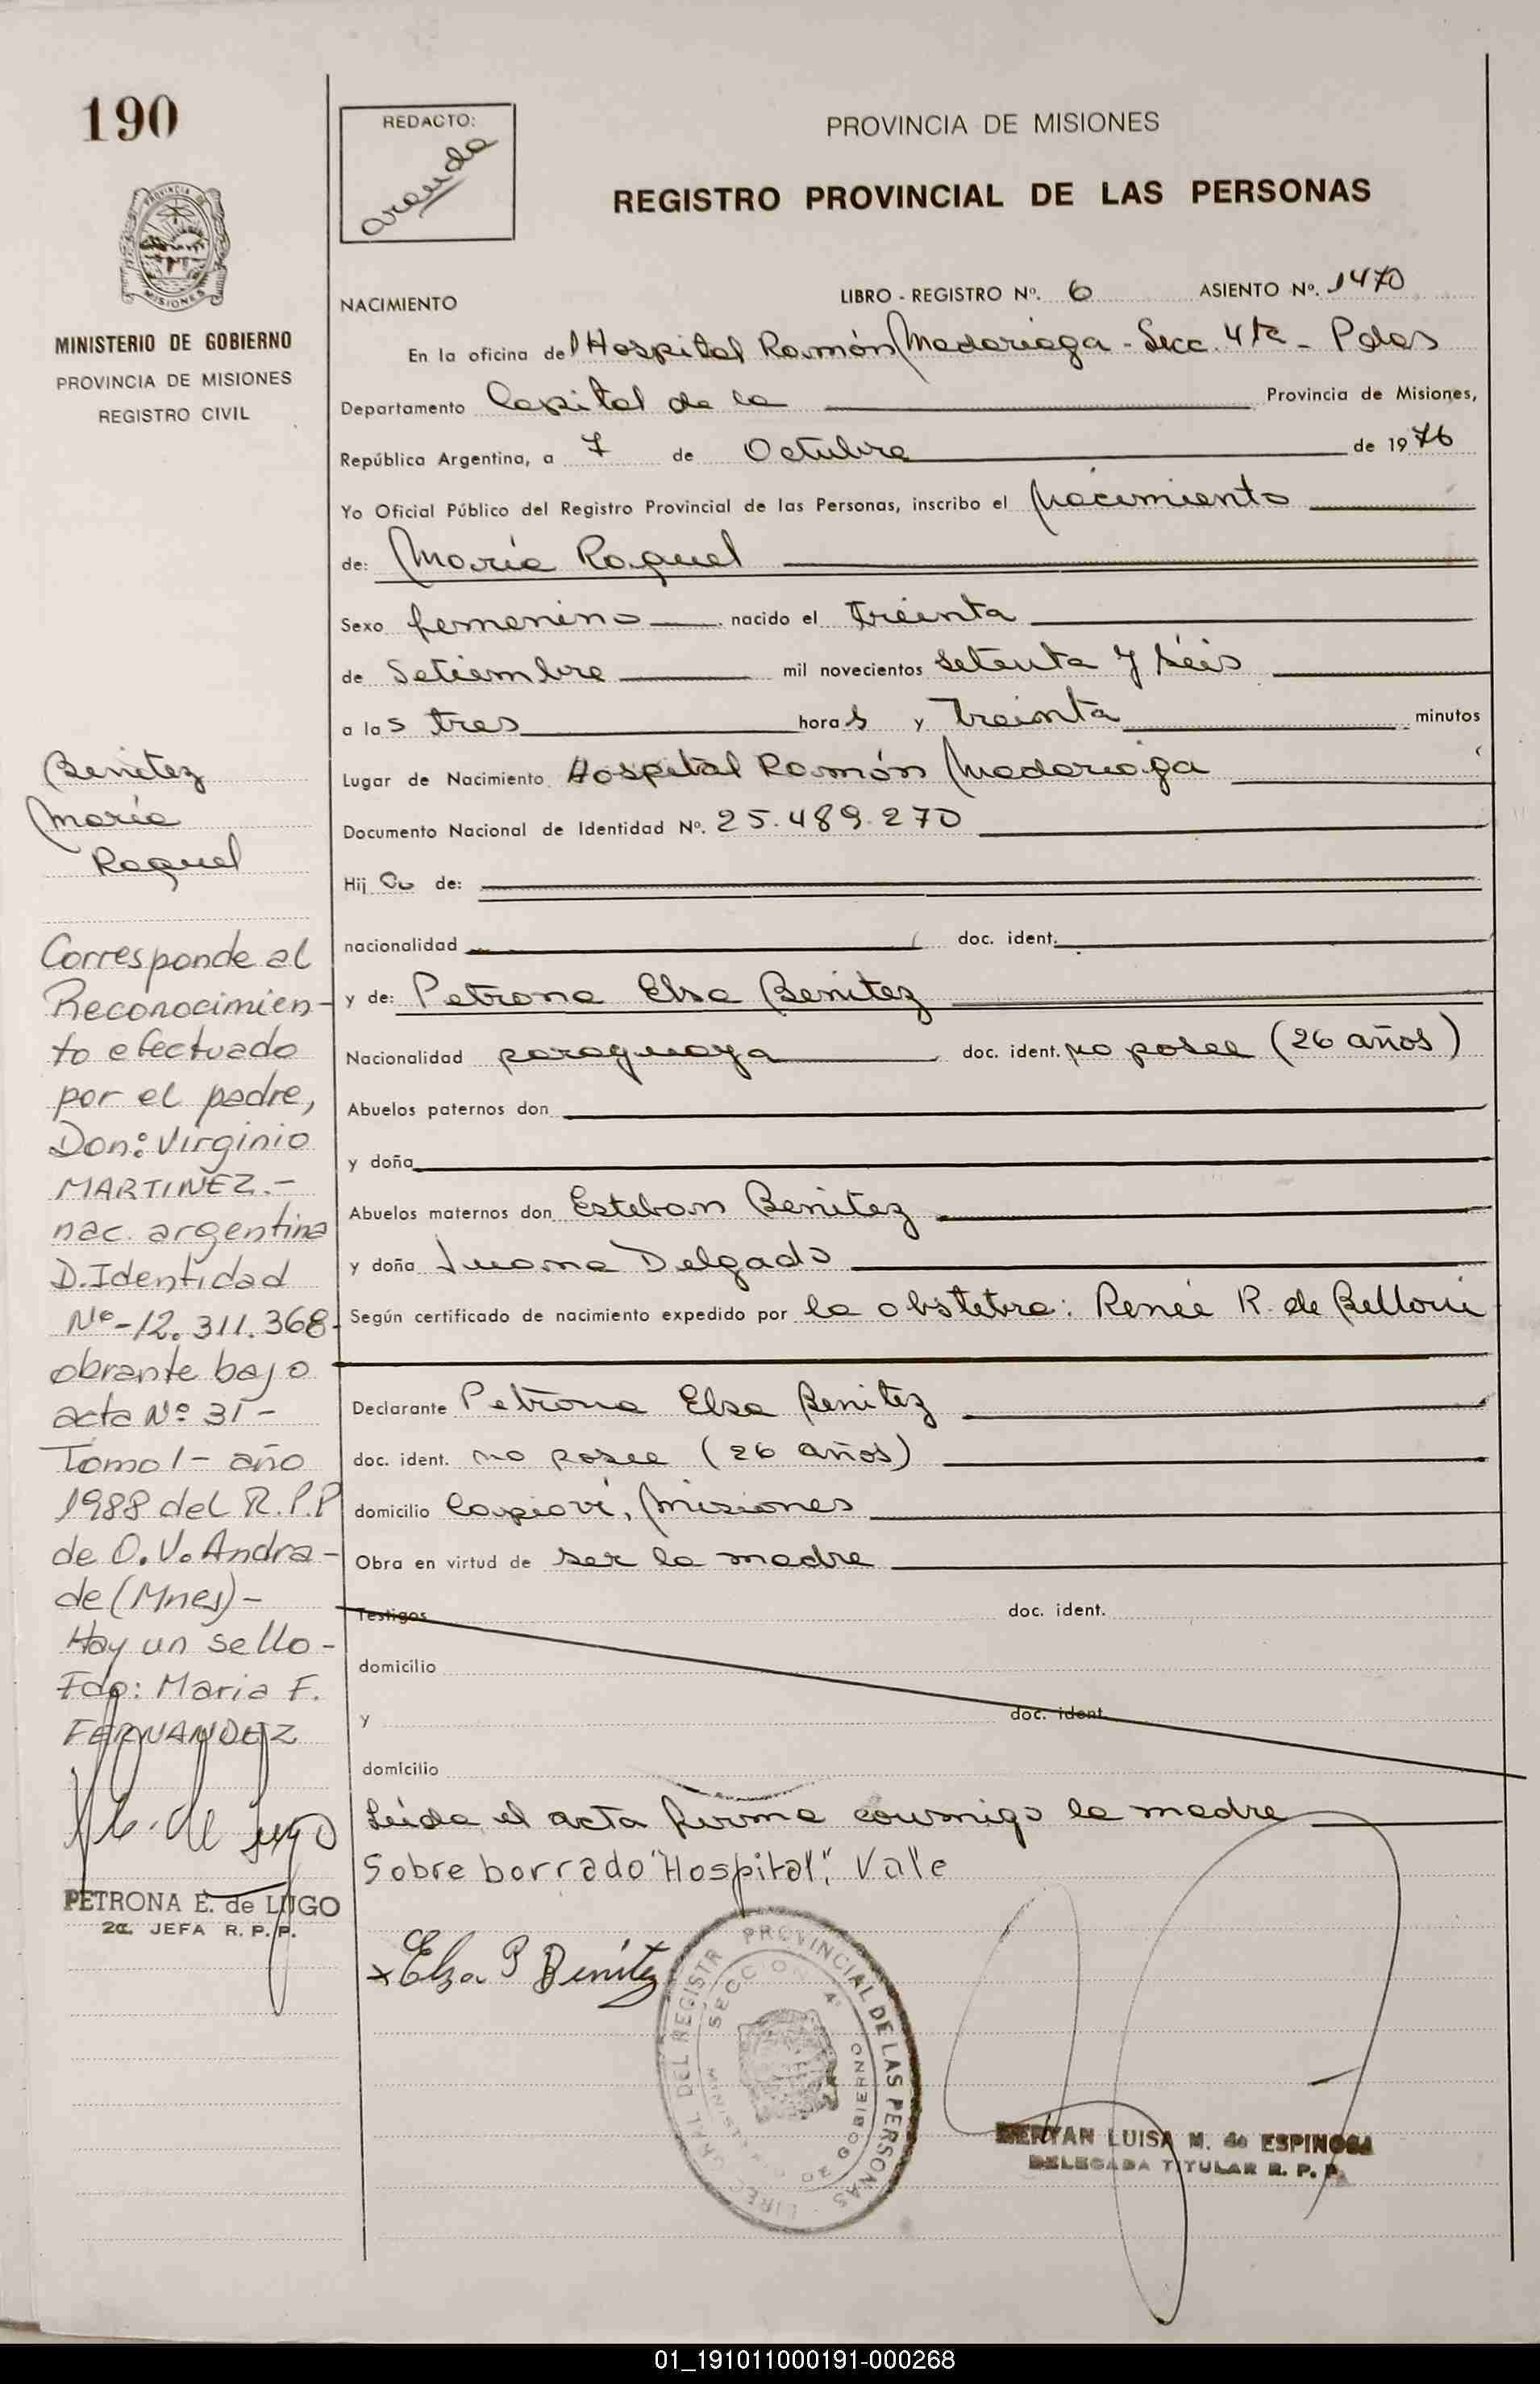 190
REDACTO:
Aranda
PROVINCIA DE MISIONES
REGISTRO PROVINCIAL DE LAS PERSONAS
PROVINCIA DE
MISIONES
MINISTERIO DE GOBIERNO
PROVINCIA DE MISIONES
REGISTRO CIVIL
NACIMIENTO
LIBRO - REGISTRO Nº. 6 ASIENTO Nº. 1470
En la oficina del Hospital Ramón Madariaga - Secc. 4ta - Pdas
Departamento Capital de la Provincia de Misiones,
República Argentina, a 7 de Octubre de 1976
Yo Oficial Público del Registro Provincial de las Personas, inscribo el Nacimiento
de: María Raquel
Sexo femenino nacido el treinta
de Setiembre mil novecientos setenta y séis
a las tres horas y treinta minutos
Lugar de Nacimiento Hospital Ramón Madariaga
Documento Nacional de Identidad Nº. 25.489.270
Hija de:
nacionalidad doc. ident.
y de: Petrona Elsa Benitez
Nacionalidad paraguaya doc. ident. no posee (26 años)
Abuelos paternos don
y doña
Abuelos maternos don Esteban Benitez
y doña Juana Delgado
Según certificado de nacimiento expedido por la obstetra: Renée R. de Belloni
Declarante Petrona Elsa Benitez
doc. ident. no posee (26 años)
domicilio Capioví, Misiones
Obra en virtud de ser la madre
Testigos doc. ident.
domicilio
y doc. ident.
domicilio
Leída el acta firma conmigo la madre
Sobre borrado "Hospital", Vale
Elsa P Benítez
Benitez
María
Raquel
Corresponde al
Reconocimien-
to efectuado
por el padre,
Don: Virginio
MARTINEZ.-
nac. argentina
D.Identidad
Nº-12.311.368-
obrante bajo
acta Nº 31-
Tomo I - año
1988 del R.P.P
de O.V. Andra-
de (Mnes)-
Hay un sello-
Fdo: Maria F.
FERNANDEZ
PETRONA E. de LUGO
2a. JEFA R. P. P.
PROVINCIAL DE LAS PERSONAS
DEL REGISTR
SECCION 4ª
GOBIERNO
MERYAN LUISA M. de ESPINOSA
DELEGADA TITULAR R. P. P.
01_191011000191-000268